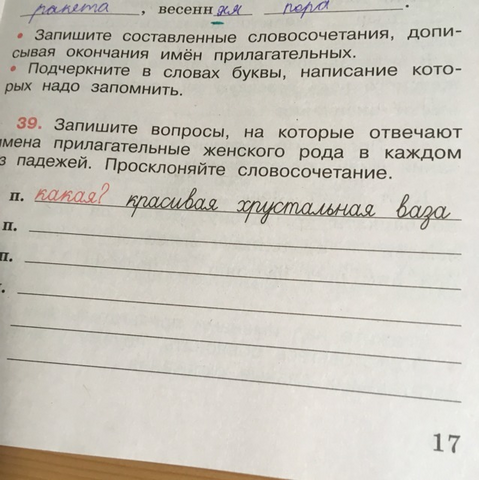 ракета, весенняя пора.
• Запишите составленные словосочетания, допи-
сывая окончания имён прилагательных.
• Подчеркните в словах буквы, написание кото-
рых надо запомнить.
39. Запишите вопросы, на которые отвечают
имена прилагательные женского рода в каждом
з падежей. Просклоняйте словосочетание.
п. какая? красивая хрустальная ваза
п.
п.
17